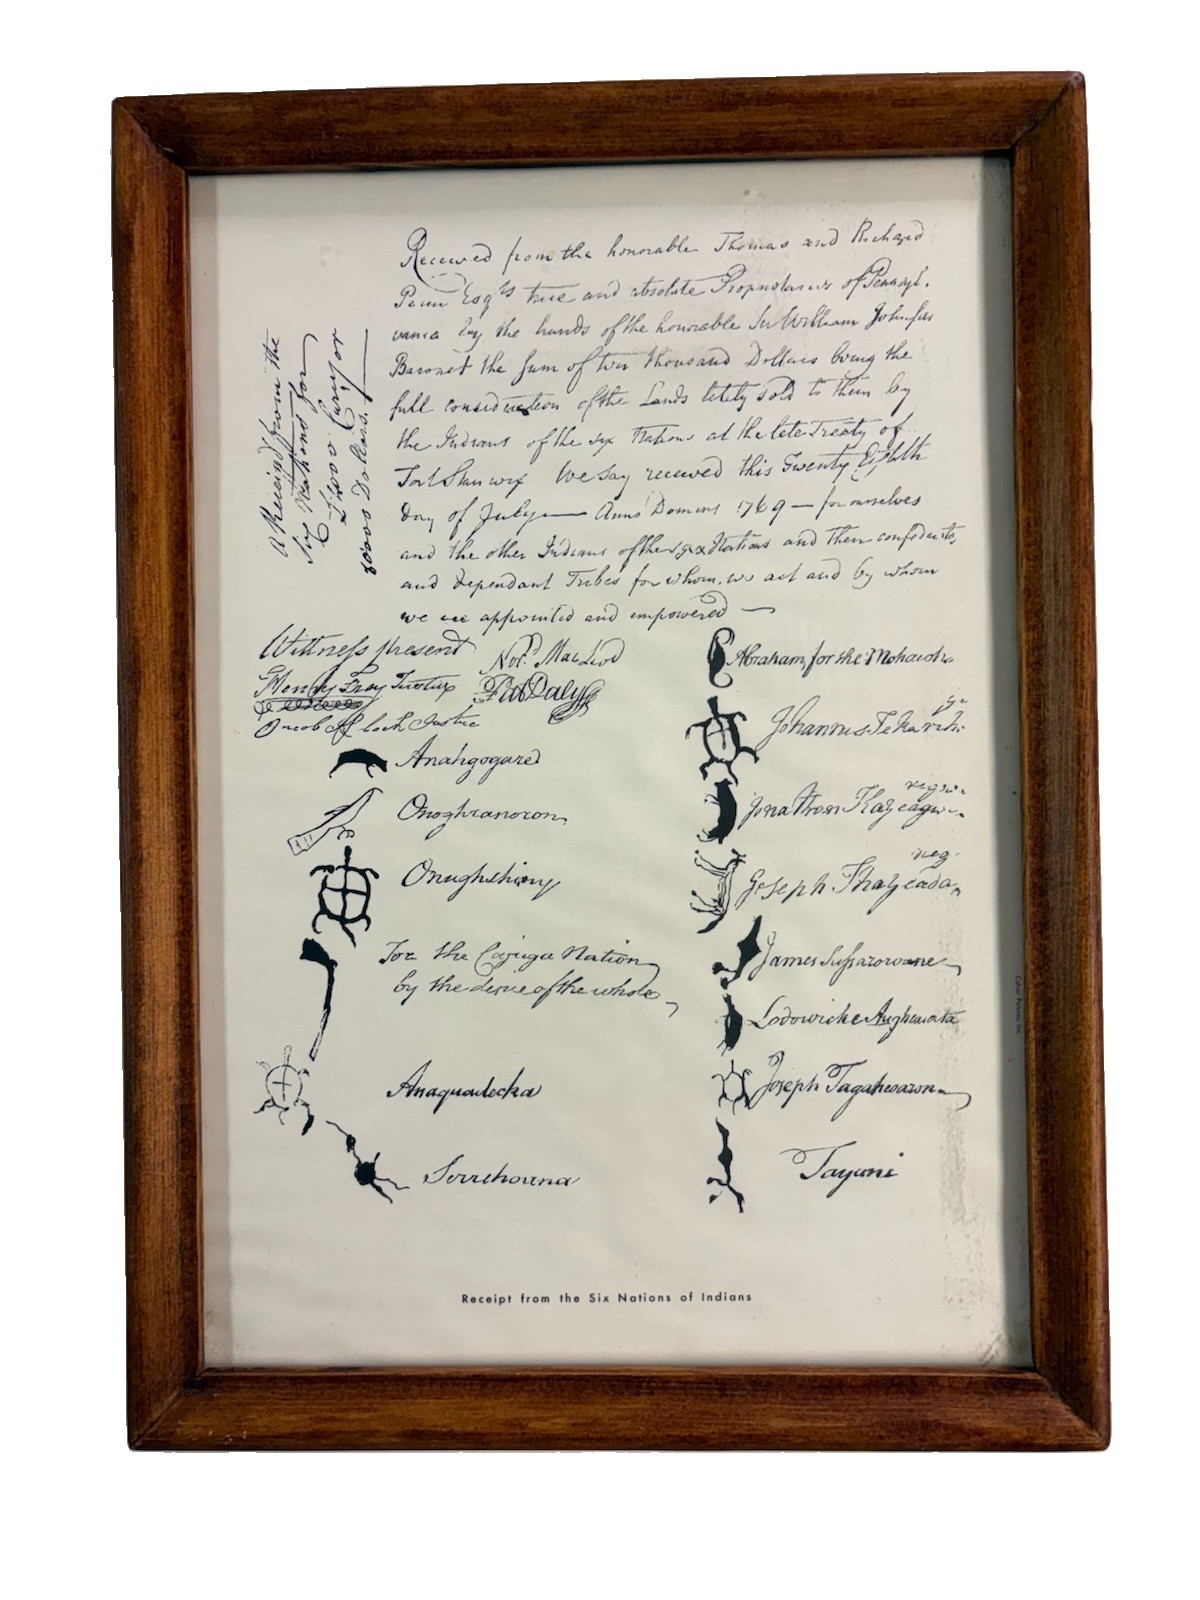 Received from the honorable Thomas and Richard
Penn Esqrs true and absolute Proprietaries of Pennsyl.
vania by the hands of the honorable Sir William Johnson
Baronet the Sum of ten thousand Dollars being the
full consideration of the Lands lately sold to them by
the Indians of the six Nations at the late Treaty of
Fort Stanwix We say received this Twenty Eighth
Day of July Anno Domini 1769 — for ourselves
and the other Indians of the six Nations and their confederates
and dependant Tribes for whom we act and by whom
we are appointed and empowered —
A Receipt from the
Six Nations for
10000 Dollars.
Wittness present
Nord. MacLeod
Henry Frey Justice
Pat Daly
Jacob Justice
Anahgogare
Onoghranoron
For the Cajuga Nation
by the desire of the whole
Anaquadecka
Serrehowna
Abraham for the Mohawks
Johannes
Jonathan
Joseph
James
Lodowicke
Joseph Tagahwaron
Tayuni
Receipt from the Six Nations of Indians
Culver Pictures, Inc.